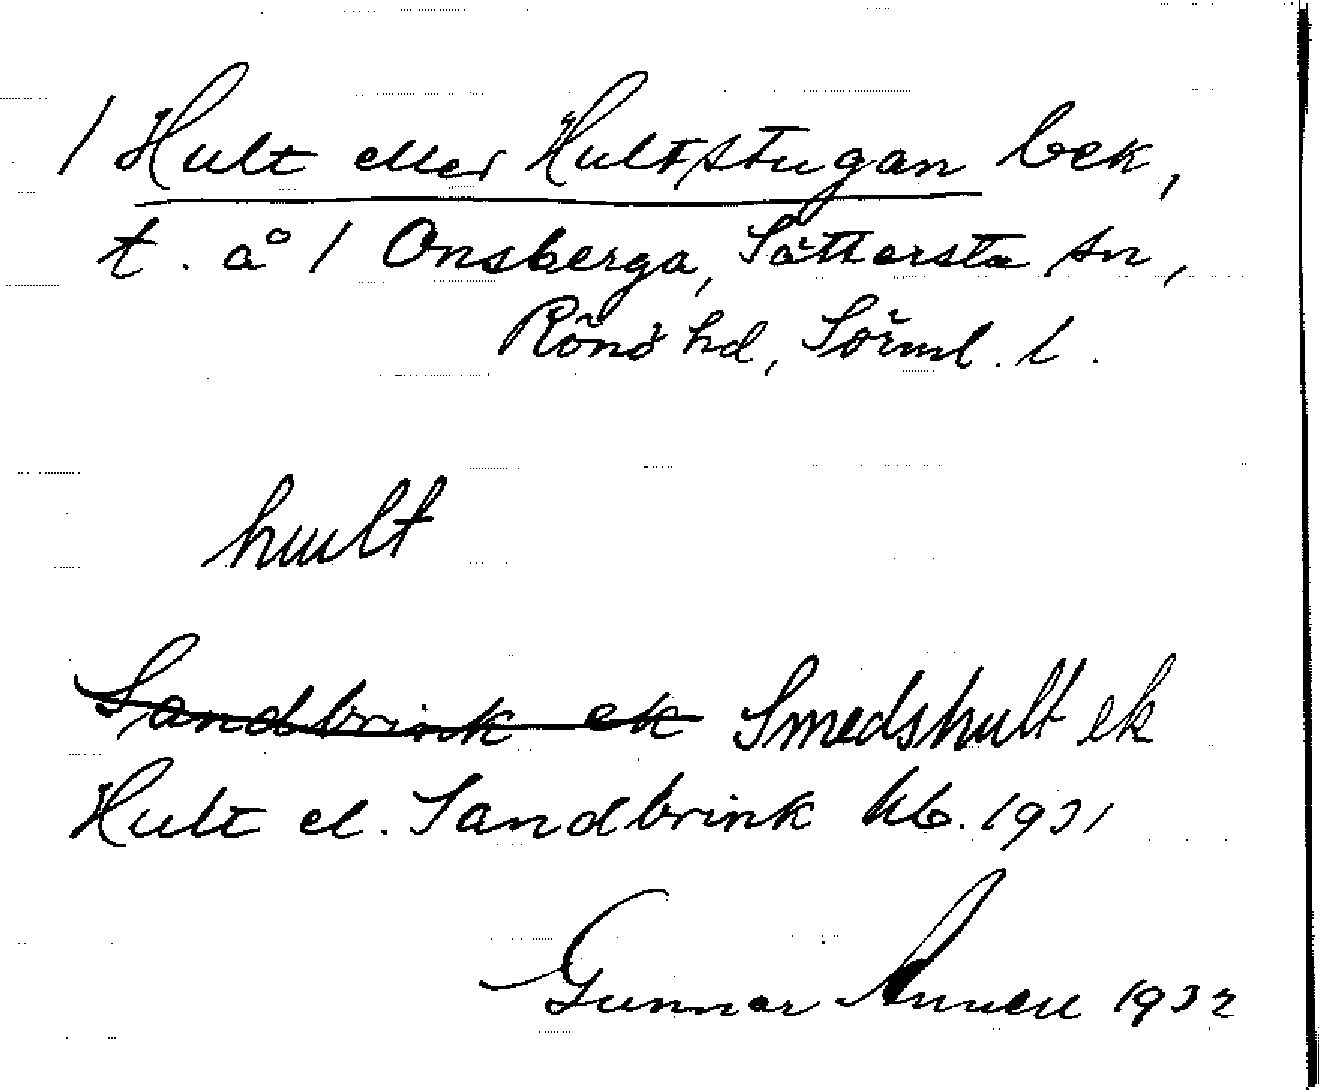 / Hult eller Hultstugan bek,
t. å / Onsberga, Sättersta sn,
Rönö hd, Sörml. l.
hult
Sandbrink ek Smedshult ek
Hult el. Sandbrink kb. 1931
Gunnar Annell 1932